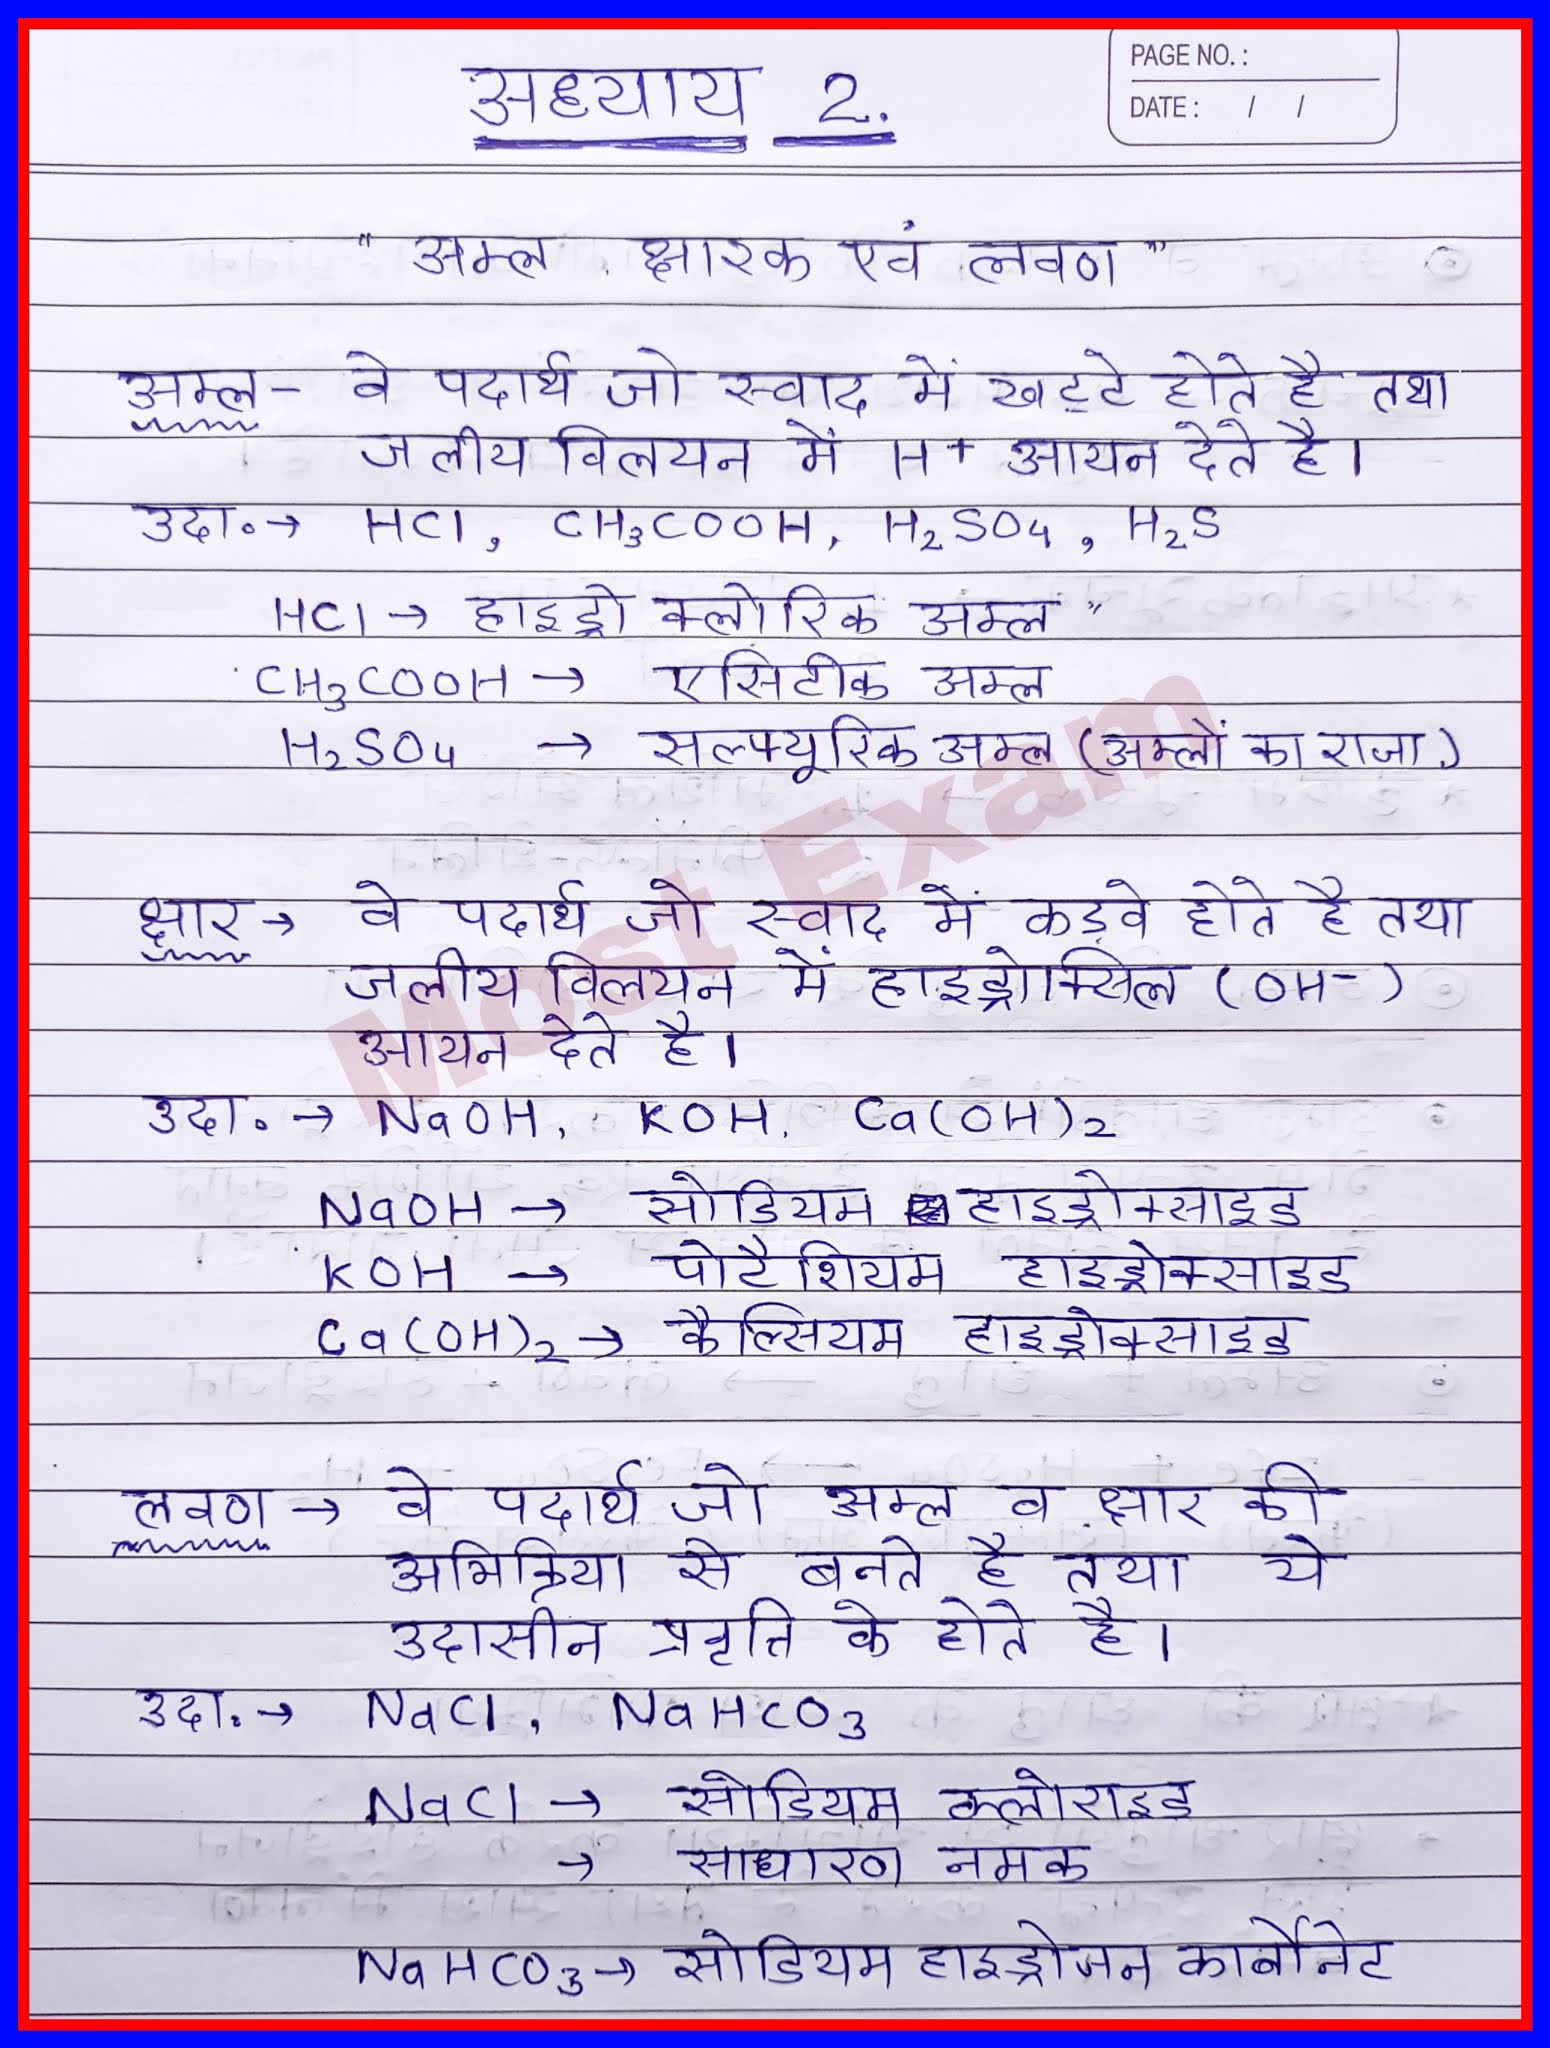 अध्याय 2.
PAGE NO. :
DATE : / /
" अम्ल, क्षारक एवं लवण "
अम्ल - वे पदार्थ जो स्वाद में खट्टे होते है तथा
जलीय विलयन में H+ आयन देते है।
उदा. → HCl, CH₃COOH, H₂SO₄, H₂S
HCl → हाइड्रो क्लोरिक अम्ल "
CH₃COOH → एसिटीक अम्ल
H₂SO₄ → सल्फ्यूरिक अम्ल (अम्लों का राजा.)
क्षार → वे पदार्थ जो स्वाद में कड़वे होते है तथा
जलीय विलयन में हाइड्रोक्सिल (OH-)
आयन देते है।
उदा. → NaOH, KOH, Ca(OH)₂
NaOH → सोडियम हाइड्रोक्साइड
KOH → पोटैशियम हाइड्रोक्साइड
Ca(OH)₂ → कैल्सियम हाइड्रोक्साइड
लवण → वे पदार्थ जो अम्ल व क्षार की
अभिक्रिया से बनते है तथा ये
उदासीन प्रवृत्ति के होते है।
उदा. → NaCl, NaHCO₃
NaCl → सोडियम क्लोराइड
→ साधारण नमक
NaHCO₃ → सोडियम हाइड्रोजन कार्बोनेट
Most Exam